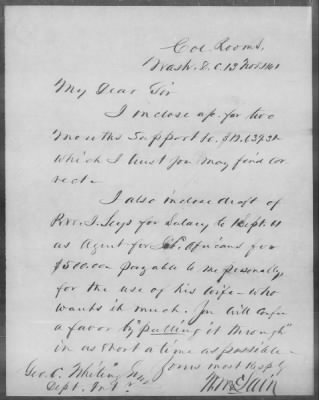 Col Rooms,
Wash. D. C. 13 Nov 1861
My Dear Sir
I inclose a/c for two
months support to
which I trust you may find cor
rect-
I also inclose draft of
Rev. J. Seys for Salary to Sept. 61
as Agent for Africans for
$500.00 payable to me personally
for the use of his wife - who
wants it much. You will confer
a favor by "pulling it through"
in as short a time as possible -
Yours most Resp'y
Geo. C. Whiting Esq
Wm McLain
Dept. Int.